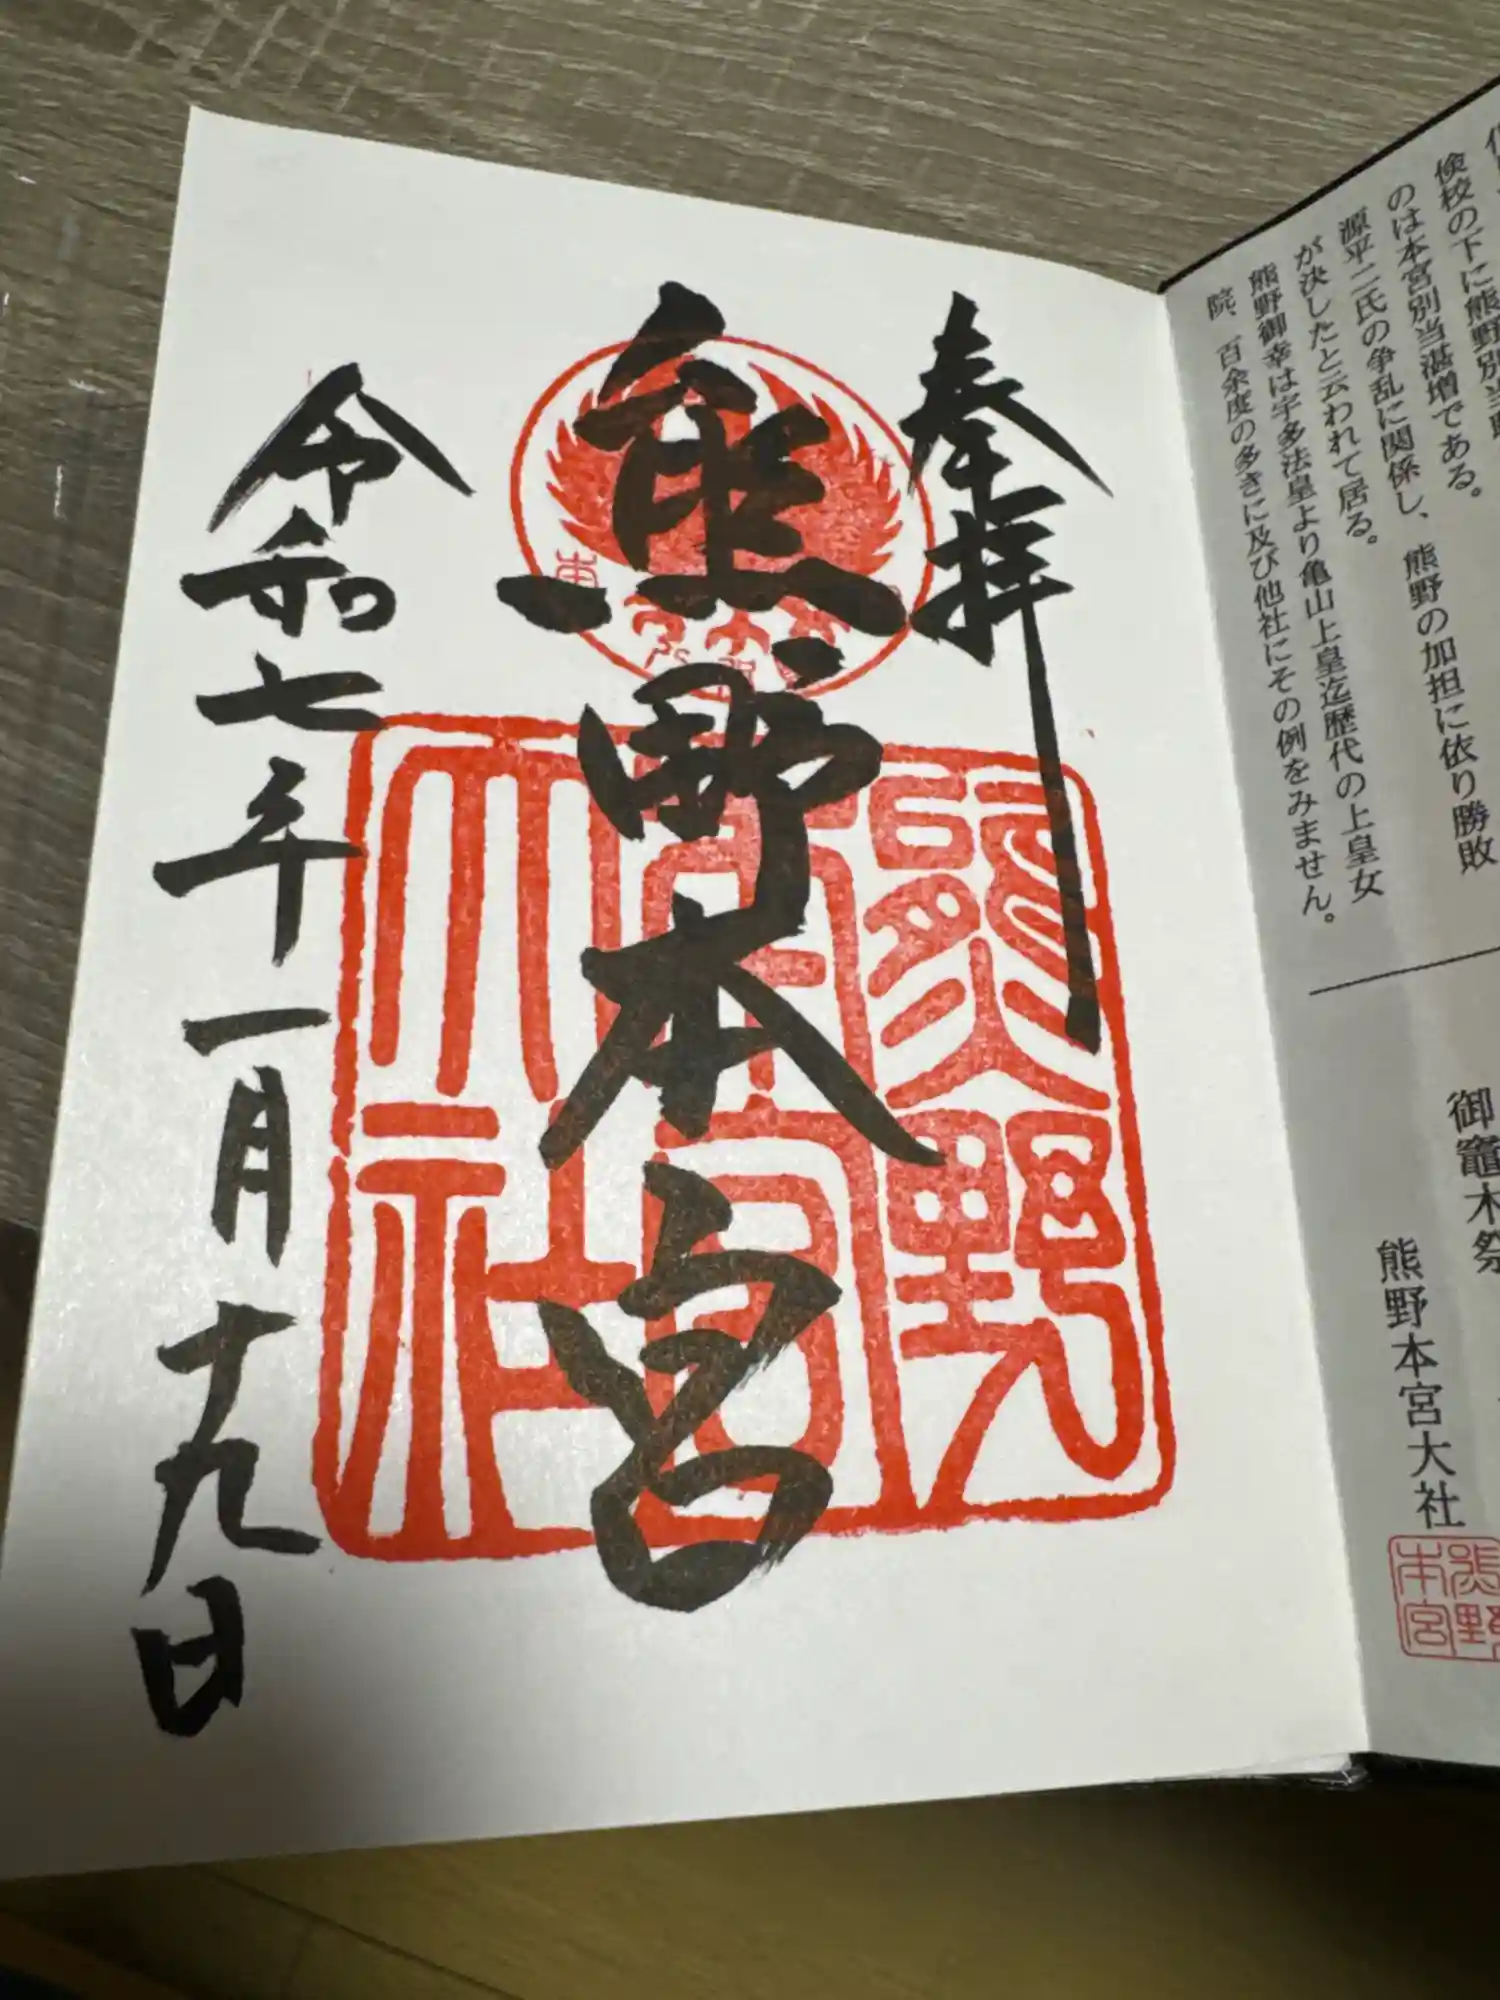 検校の下に熊野別当
のは本宮別当湛増である。
源平二氏の争乱に関係し、熊野の加担に依り勝敗
が決したと云われて居る。
熊野御幸は宇多法皇より亀山上皇迄歴代の上皇女
院、百余度の多きに及び他社にその例をみません。
御竈木祭
熊野本宮大社
熊野
本宮
奉拝
熊野本宮
熊野
本宮
大社
令和七年一月十九日